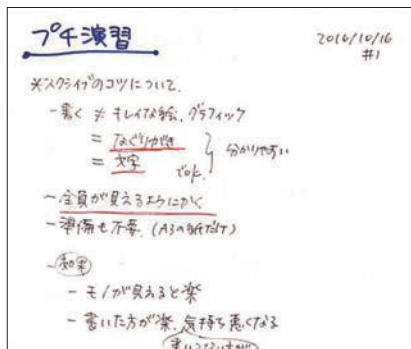 プチ演習
2016/10/16
#1
※スクライブのコツについて.
- 書く ≠ キレイな絵, グラフィック
= なぐりがき
= 文字
でok.
分かりやすい
- 全員が見えるようにかく
- 準備も不要. (A3の紙だけ)
- 効果
- モノが見えると楽
- 書いた方が楽. 気持ち悪くなる
書いてない方が